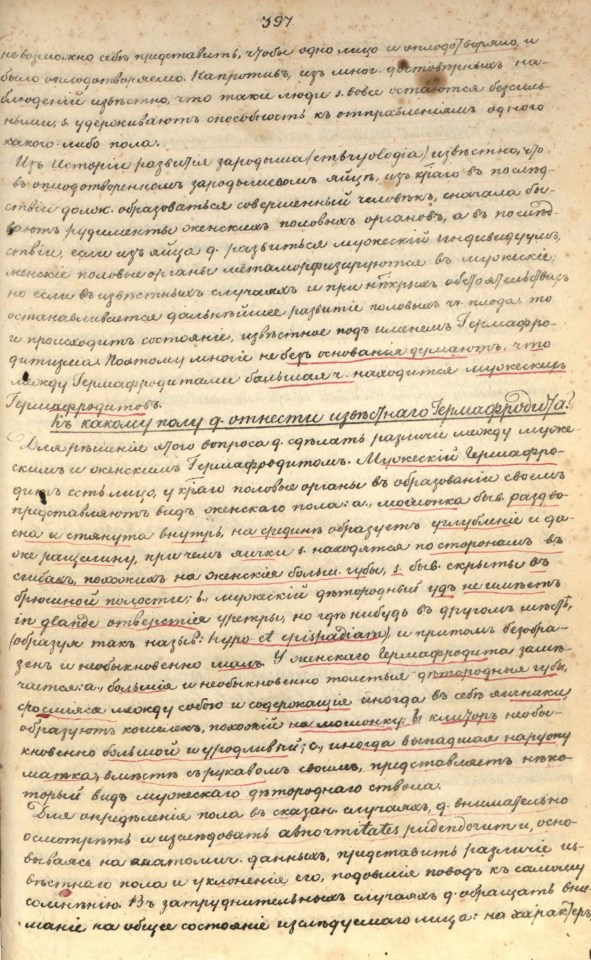 397
невозможно себѣ представить, чтобы одно лицо и оплодотворяло, и
было оплодотворяемо. Напротивъ, изъ мног. достовѣрныхъ на-
блюденій извѣстно, что такіе люди s. вовсе остаются безсиль-
ными, s. удерживаютъ способность къ отправленіямъ одного
какого-либо пола.
Изъ Исторіи развитія зародыша извѣстно, что
въ оплодотворенномъ зародышевомъ яйцѣ, изъ кţаго въ послѣд-
ствіи долж. образоваться совершенный человѣкъ, сначала бы-
ваютъ рудименты женскихъ половыхъ органовъ, а въ послѣд-
ствіи, если изъ яйца д. развиться мужескій индивидуумъ,
женскіе половые органы метаморфизируются въ мужескіе;
но если въ извѣстныхъ случаяхъ и при нѣкţрыхъ обстоятельствахъ
останавливается дальнѣйшее развитіе половыхъ чч. плода, то
и происходитъ состояніе, извѣстное подъ именемъ Гермафро-
дитизма. Поэтому многіе не безъ основанія думаютъ, что
между Гермафродитами большая ч. находится мужескихъ
Гермафродитовъ.
Къ какому полу д. отнести извѣстнаго Гермафродита?
Для рѣшенія этого вопроса д. сдѣлать различіе между муже-
скимъ и женскимъ Гермафродитомъ. Мужескій Гермафро-
дитъ есть лицо, у кţаго половые органы въ образованіи своемъ
представляютъ видъ женскаго пола: a., мошонка быв. раздво-
ена и стянута внутрь, на срединѣ образуетъ углубленіе и да-
же расщелину, при чемъ яички s. находятся по сторонамъ въ
сгибахъ, похожихъ на женскія больш. губы, s. быв. скрыты въ
брюшной полости; b., мужескій дѣтородный удъ не имѣетъ
in glande отверстія уретры, но гдѣ нибудь въ другомъ мѣстѣ,
(образуя такъ назыв: hypo et epispadiam), и притомъ безобра-
зенъ и необыкновенно малъ. У женскаго Гермафродита замѣ-
чается: a., большія и необыкновенно толстыя дѣтородныя губы,
сросшіяся между собою и содержащія иногда въ себѣ яичники,
образуютъ кошелекъ, похожій на мошонку; b., клиторъ необы-
кновенно большой и уродливый; c., иногда выпадшая наружу
матка, вмѣстѣ съ рукавомъ своимъ, представляетъ нѣко-
торый видъ мужескаго дѣтороднаго ствола.
Для опредѣленія пола въ сказан. случаяхъ, д. внимательно
осмотрѣть и изслѣдовать pudendorum и, осно-
вываясь на анатомич. данныхъ, представить различіе из-
вѣстнаго пола и уклоненія его, подавшія поводъ къ самому
сомнѣнію. Въ затруднительныхъ случаяхъ д. обращать вни-
маніе на общее состояніе изслѣдуемаго лица: на характеръ,